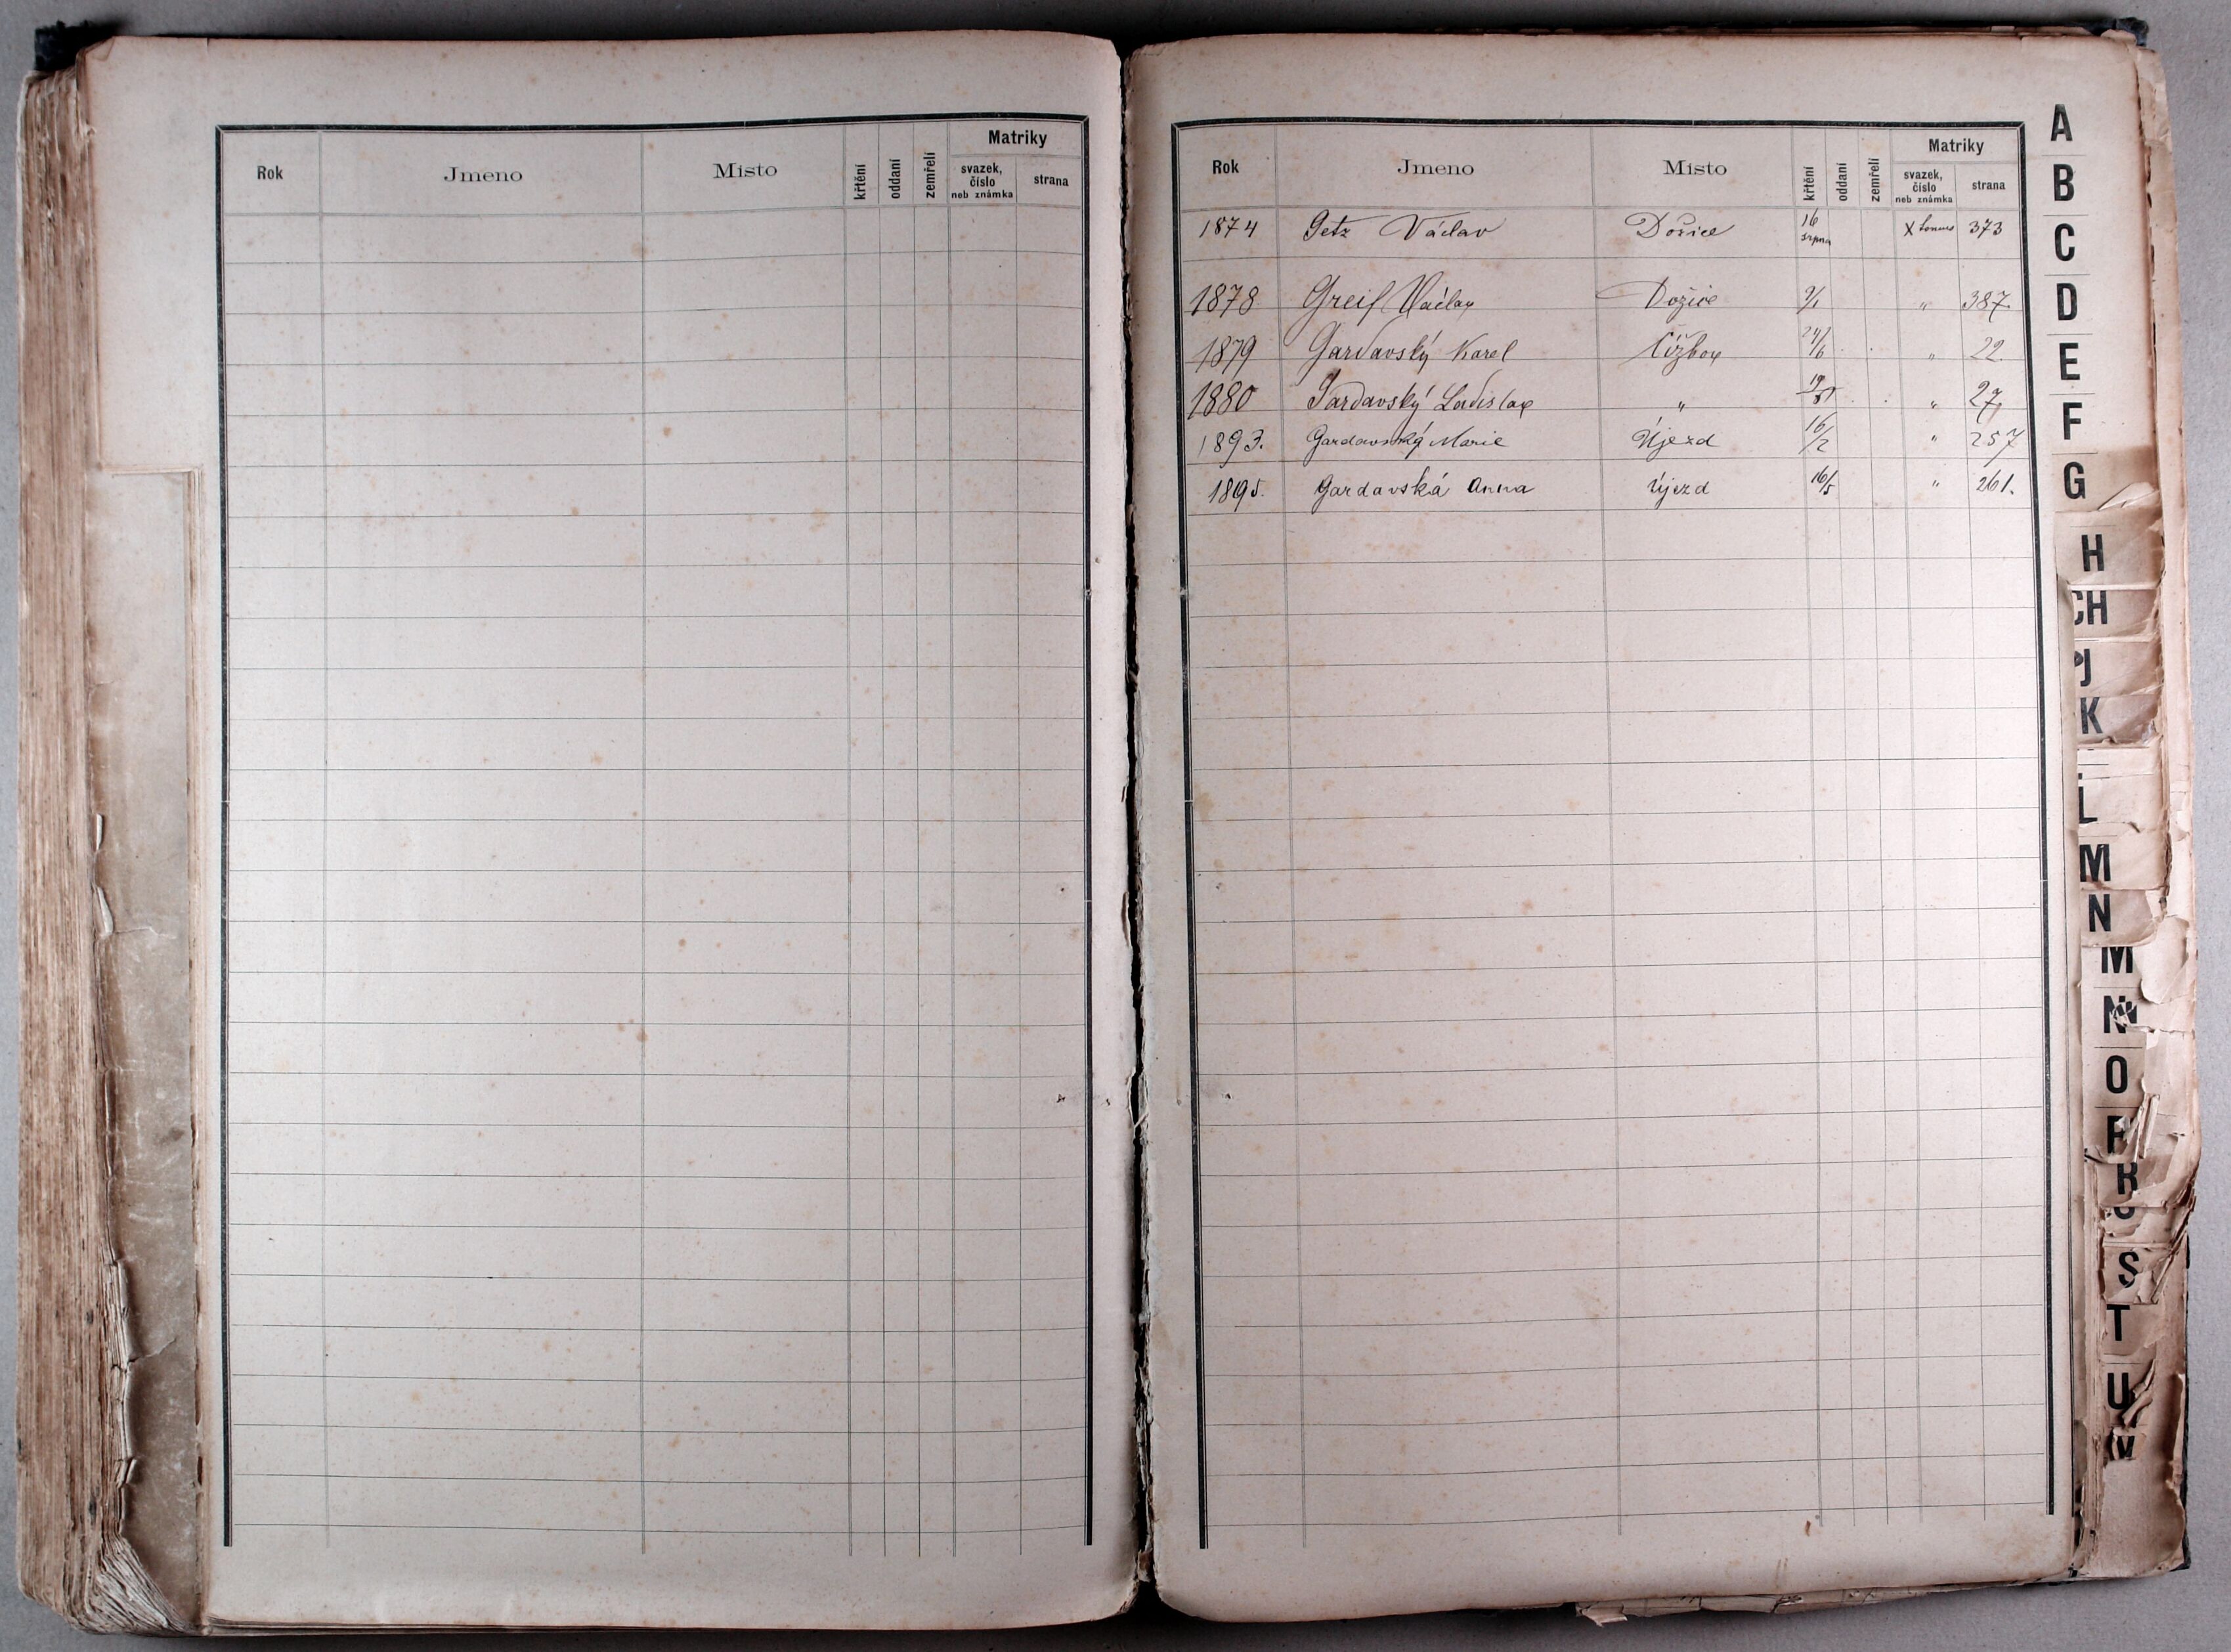 Rok Jmeno Místo křtění oddaní zemřelí Matriky svazek, číslo neb známka strana
Rok Jmeno Místo křtění oddaní zemřelí Matriky svazek, číslo neb známka strana
1874 Getz Václav Dožice 16 srpna X tomus 373
1878 Greif Václav Dožice 9/1 " 387.
1879 Gardavský Karel Čížkov 24/6 " 22.
1880 Gardavský Ladislav " 19/ " 27
1893. Gardavská Marie Újezd 16/2 " 257
1895. Gardavská Anna Újezd 16/5 " 261.
A
B
C
D
E
F
G
H
CH
J
K
L
M
N
M
N
O
P
R
S
T
U